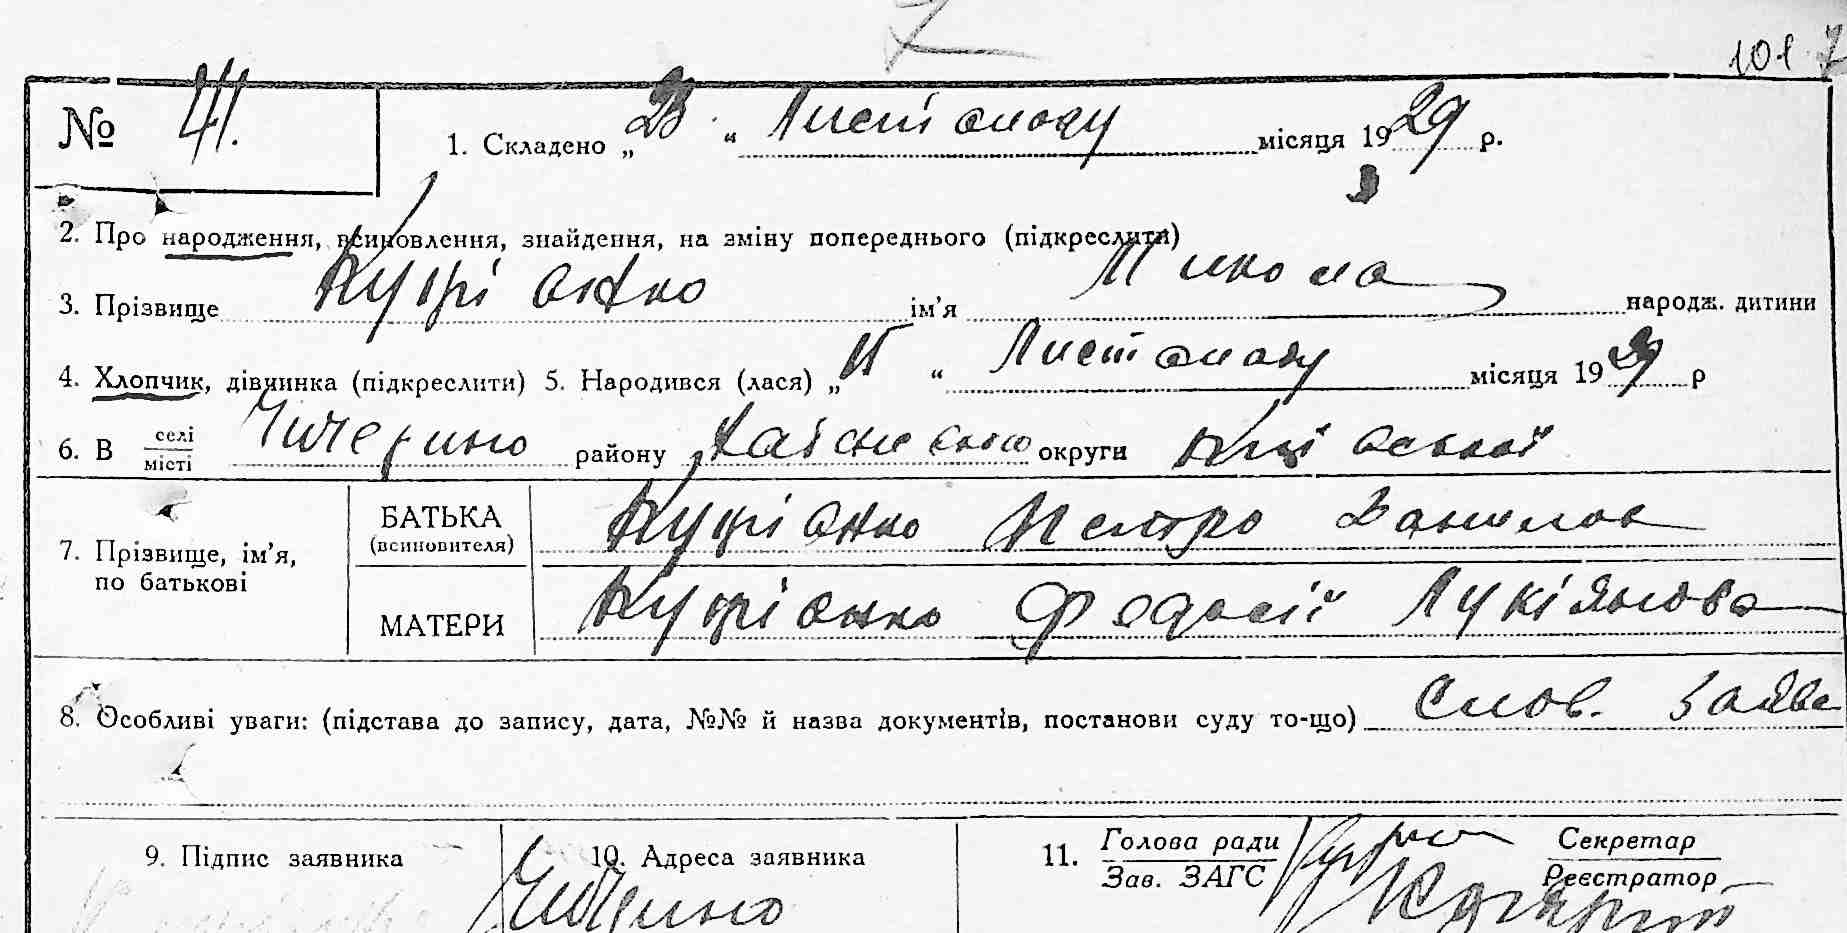 101 7
№ 41. 1. Складено „23“ Листопаду місяця 1929 р.
2. Про народження, всиновлення, знайдення, на зміну попереднього (підкреслити)
3. Прізвище Купріянко ім’я Микола народж. дитини
4. Хлопчик, дівчинка (підкреслити) 5. Народився (лася) „ “ Листопаду місяця 1929 р
6. В селі місті Чичерино району округи
7. Прізвище, ім’я, по батькові
БАТЬКА (всиновителя) Купріянко Петро Данилов
МАТЕРИ Купріянко Федосії Лукіянова
8. Особливі уваги: (підстава до запису, дата, №№ й назва документів, постанови суду то-що) Слов. Заява
9. Підпис заявника 10. Адреса заявника 11. Голова ради Зав. ЗАГС Секретар Реєстратор